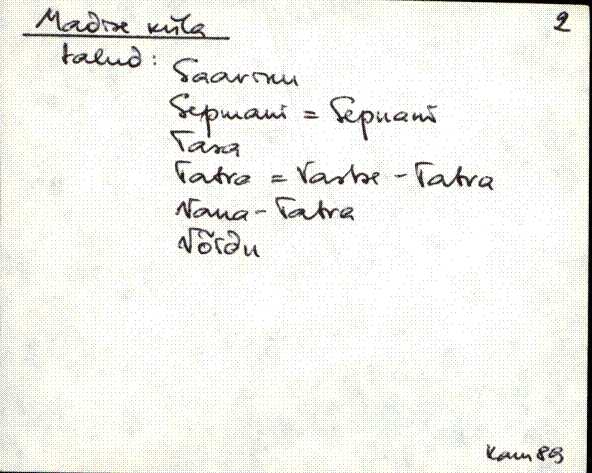 Madise küla 2
talud:
Saarinu
Sepmani = Sepnani
Tasa
Tatra = Vastse-Tatra
Vana-Tatra
Võrdu
Kam 89